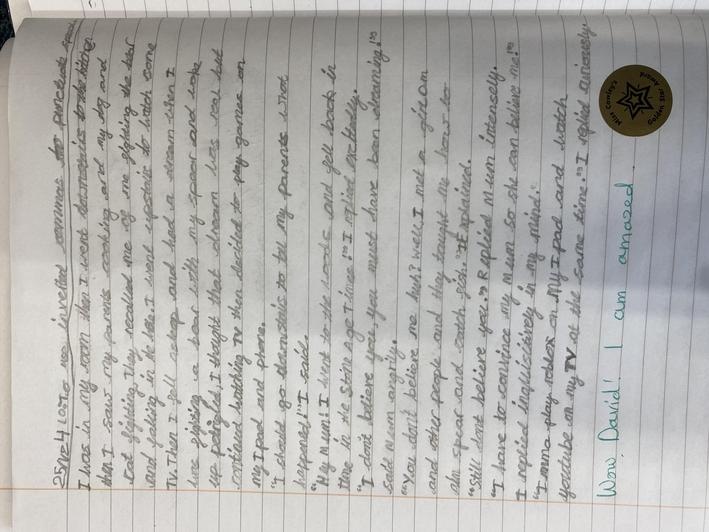 25/12/24 LO: To use inverted commas to punctuate speech.
I was in my room then I went downstairs to the kitchen
then I saw my parents cooking and my dog and
cat fighting. They recalled me of me fighting the bear
and falling in the I went upstairs to watch some
TV. Then I fell asleep and had a dream when I
was fighting a bear with my spear and woke
up petrified, I thought that dream was real but
continued watching TV then decided to play games on
my Ipad and phone.
"I should go downstairs to tell my parents what
happened!" I said.
"Hey Mum! I went to the woods and fell back in
time in the stone age times!" I replied excitedly.
"I don't believe you, you must have been dreaming!"
said Mum angrily.
"You don't believe me huh? Well I met a
and other people and they taught me how to
aim spear and catch fish." I explained.
"Still dont believe you." Replied Mum intensely.
"I have to convince my Mum so she can believe me!"
I replied in my mind.
"I imma play roblox on my Ipad and watch
youtube on my TV at the same time." I replied
Wow David! I am amazed.
Miss Cowley's
Golden Star Award